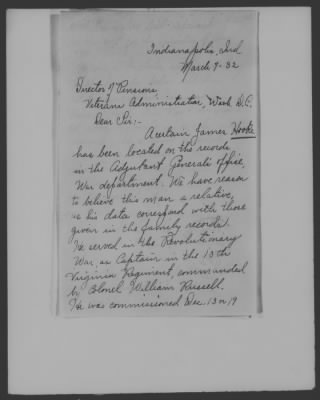 Indianapolis, Ind
March 9-32
Director of Pensions,
Veterans Administration, Wash. D.C.
Dear Sir:-
A certain James Hooke
has been located on the records
in the Adjutant Generals office,
War department. We have reason
to believe this man a relative,
as his data correspond with those
given in the family records.
He served in the Revolutionary
War, as Captain in the 13th
Virginia Regiment, commanded
by Colonel William Russell.
He was commissioned Dec. 13 or 19